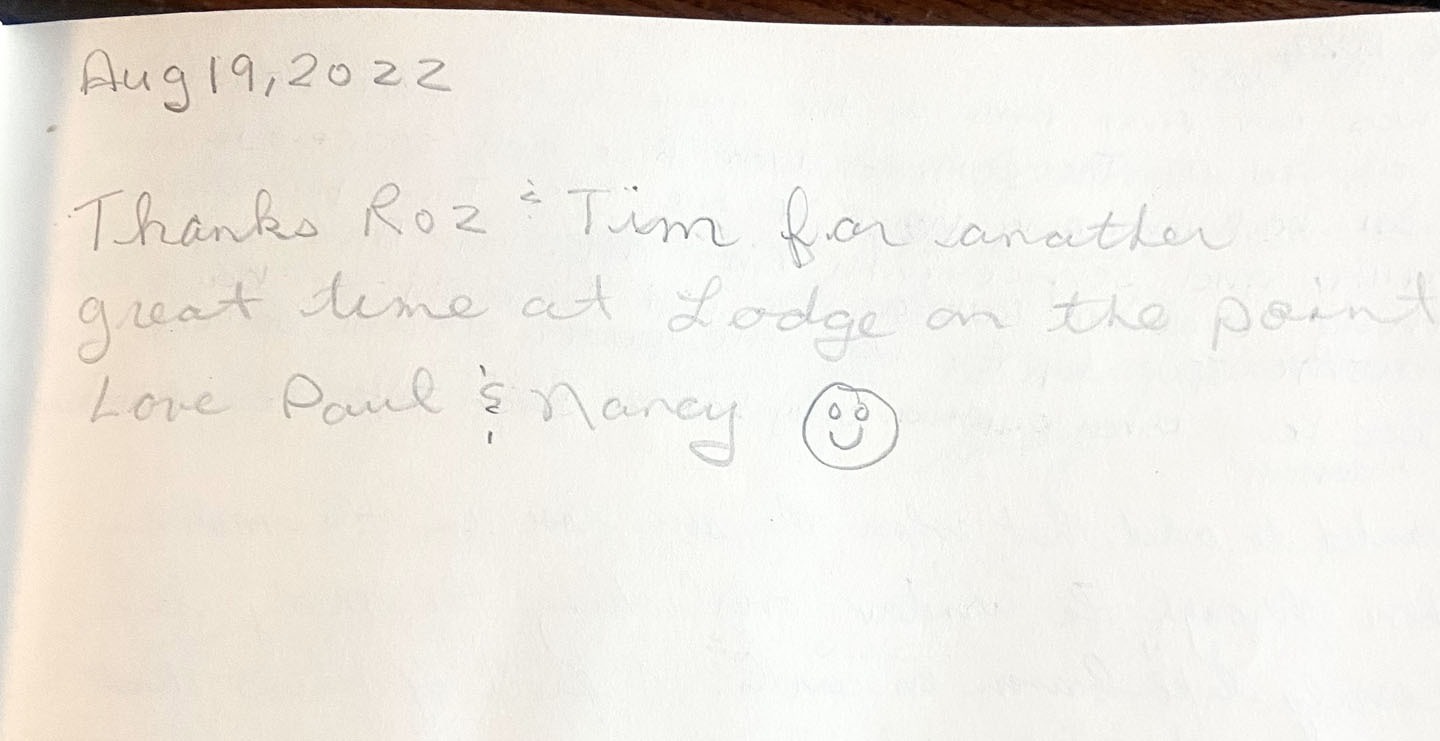 Aug 19, 2022
Thanks Roz & Tim for another
great time at Lodge on the point
Love Paul & Nancy